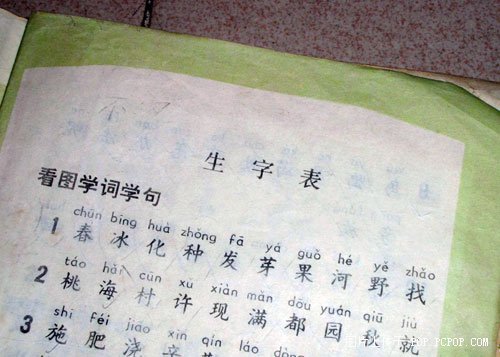 生字表
看图学词学句
chūn bīng huà zhǒng fā yá guǒ hé yě zhǎo
1 春 冰 化 种 发 芽 果 河 野 找
táo hǎi cūn xǔ xiàn mǎn dōu yuán qiū jiù
2 桃 海 村 许 现 满 都 园 秋 就
shī féi jiāo xīn qín láo dòng
3 施 肥 浇 辛 勤 劳